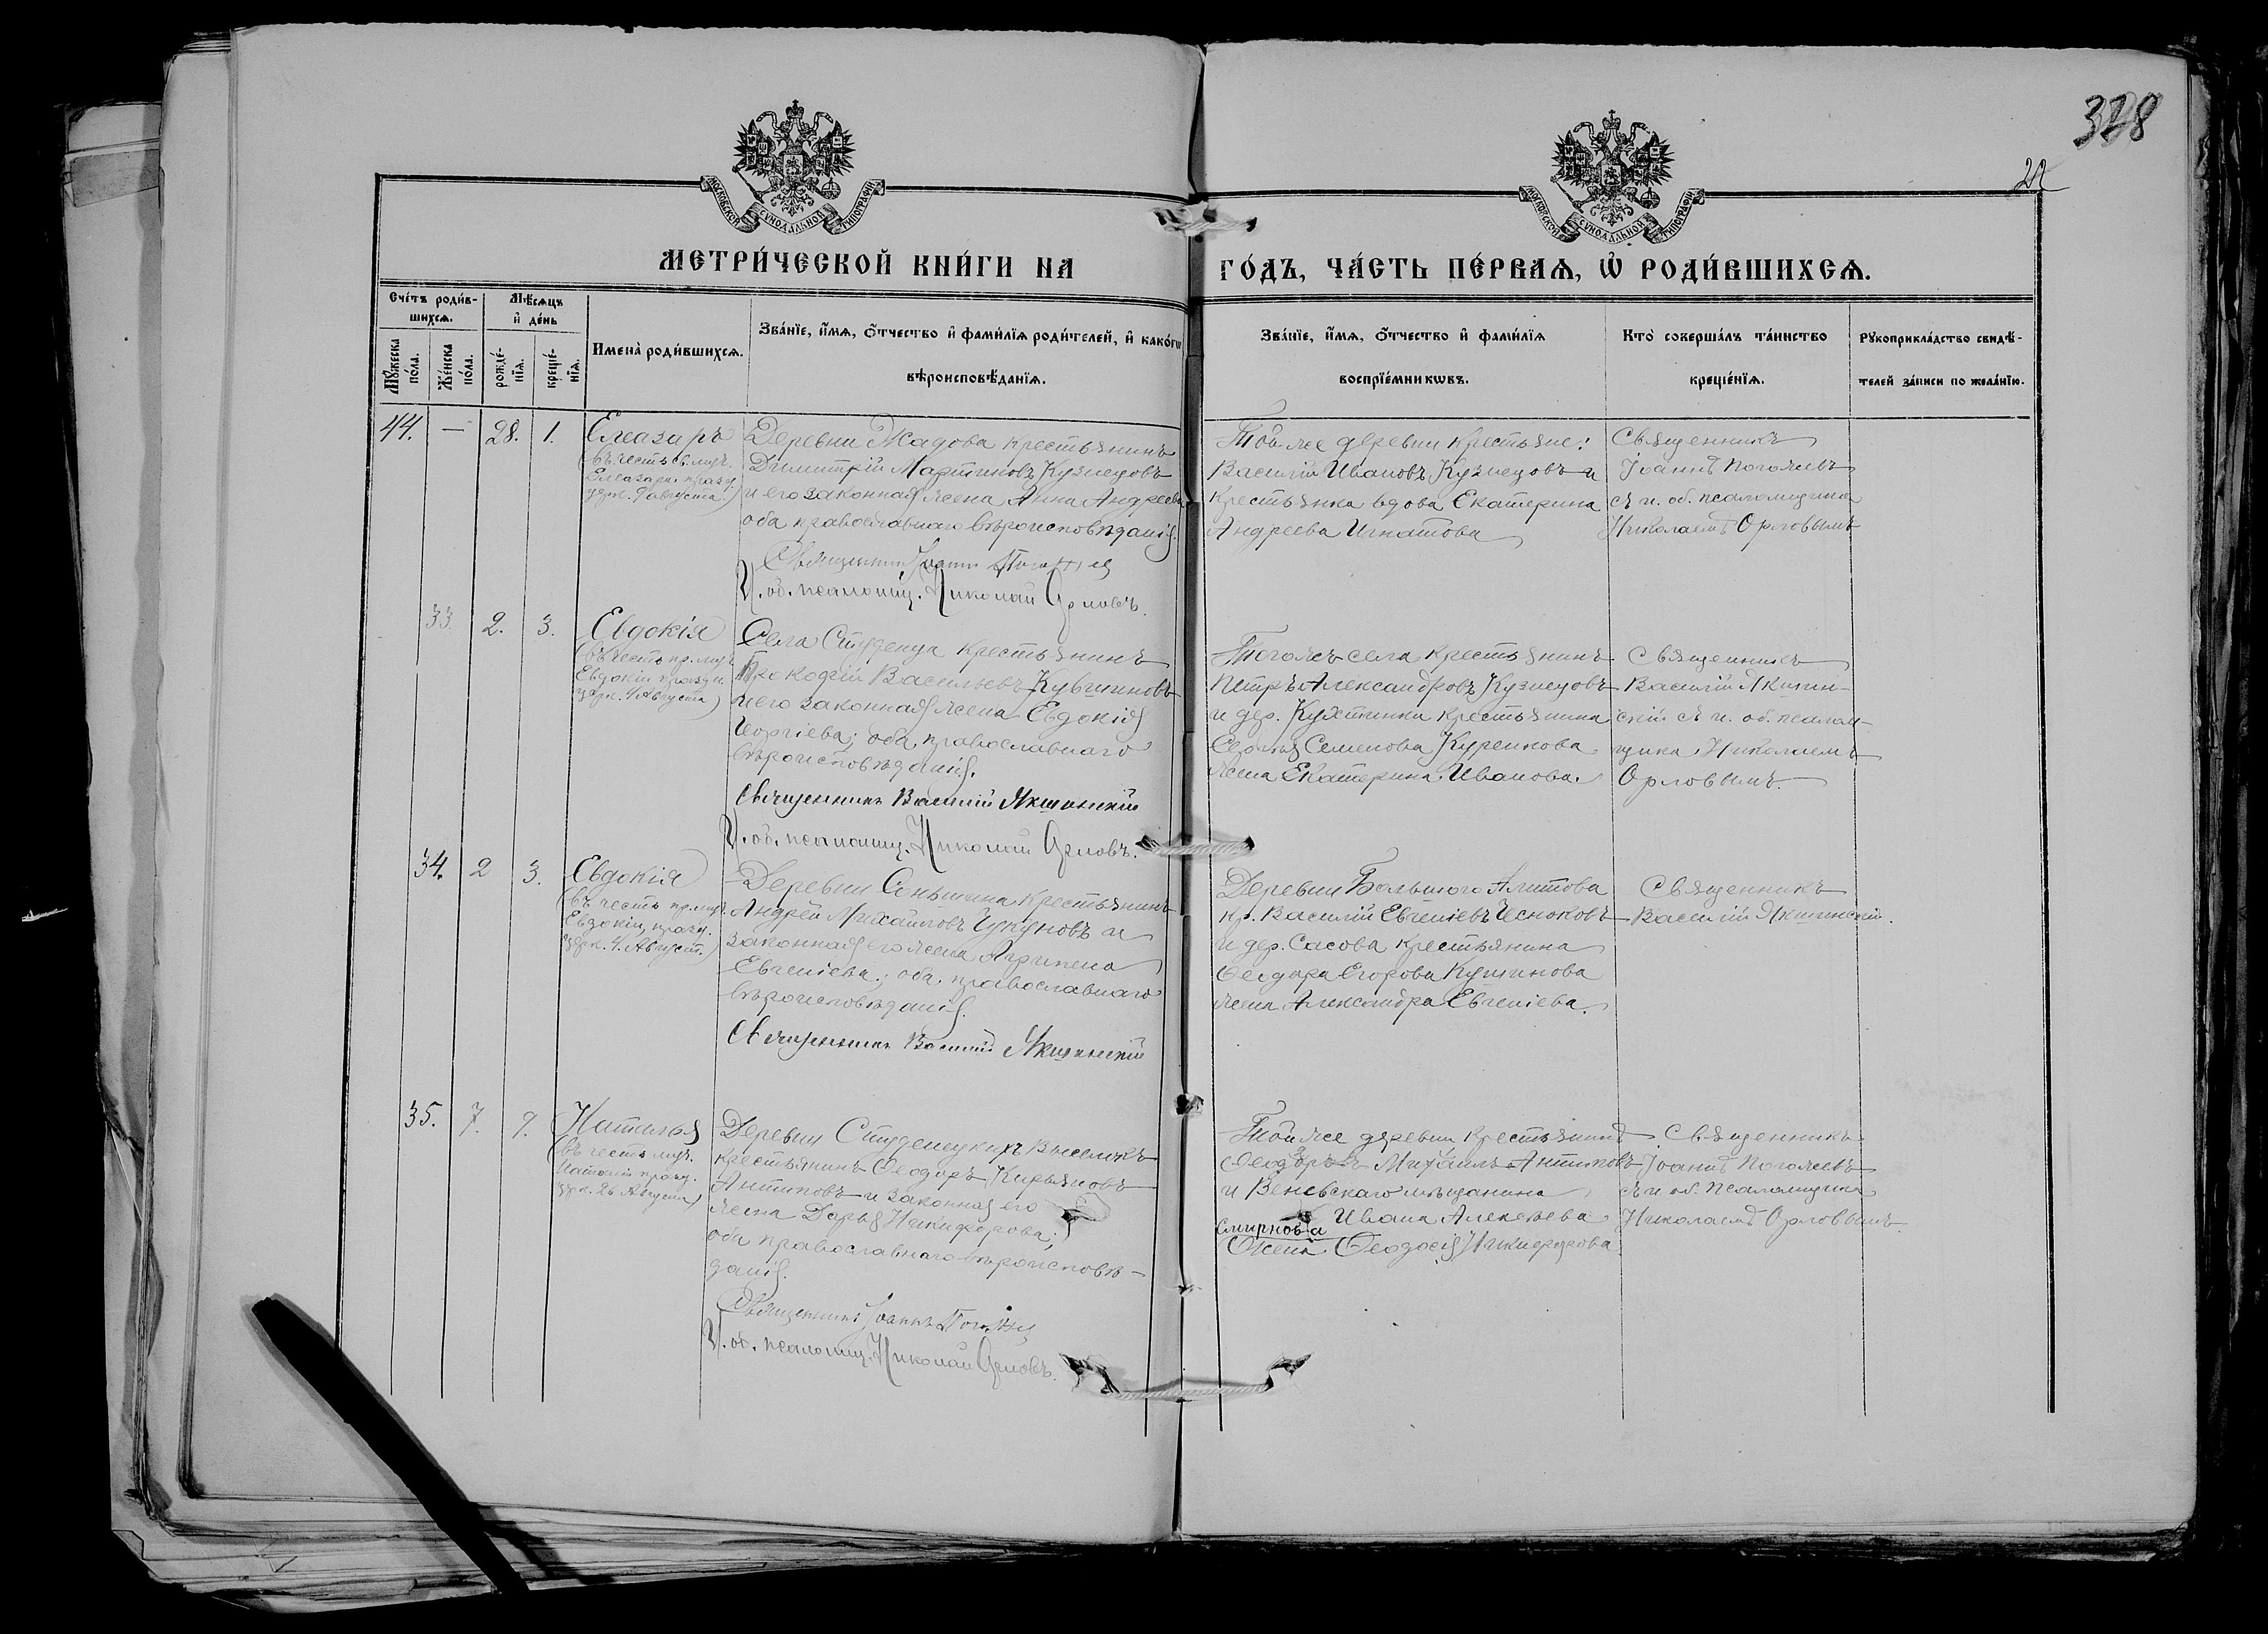 378
22
МОСКОВСКОЙ СѴНОДАЛЬНОЙ ТИПОГРАФІИ
МОСКОВСКОЙ СѴНОДАЛЬНОЙ ТИПОГРАФІИ
МЕТРИ́ЧЕСКОЙ КНИ́ГИ НА
ГО́ДЪ, ЧА́СТЬ ПЕ́РВАѦ, Ѡ҆ РОДИ́ВШИХСѦ.
Сче́тъ роди́в-
шихсѧ.
Мѣ́сѧцъ
и҆ де́нь
Мꙋ́жеска
по́ла.
Же́нска
по́ла.
рожде́-
нїѧ.
креще́-
нїѧ.
Имена̀ роди́вшихсѧ.
Зва́нїе, и҆́мѧ, ѻ҆́тчество и҆ фами́лїѧ роди́телей, и҆ како́гѡ
вѣроисповѣ́данїѧ.
Зва́нїе, и҆́мѧ, ѻ҆́тчество и҆ фами́лїѧ
воспрїе́мникѡвъ.
Кто̀ соверша́лъ та́инство
креще́нїѧ.
Рꙋкоприкла́дство свидѣ́-
телей за́писи по жела́нїю.
44. — 28. 1. Елеазаръ
(въ честь св. муч.
Елеазара празд.
церк. 1 августа.)
Деревни Жадова крестьянинъ
Димитрій Мартиновъ Кузнецовъ
и его законная жена Анна Андреева
оба православнаго вѣроисповѣданія.
Священникъ Іоаннъ
И. об. псаломщ. Николай Орловъ.
Той же деревни крестьяне:
Василій Ивановъ Кузнецовъ и
крестьянка вдова Екатерина
Андреева Игнатова
Священникъ
Іоаннъ Погожевъ
съ и. об. псаломщика
Николаемъ Орловымъ
33. 2. 3. Евдокія
(въ честь пр. муч.
Евдокіи праздн.
церк. 4 Августа)
Села Студенца крестьянинъ
Прокофій Васильевъ Кувшиновъ
и его законная жена Евдокія
Георгіева; оба православнаго
вѣроисповѣданія.
Священникъ Василій Якшинскій
И. об. псаломщ. Николай Орловъ.
Того же села крестьянинъ
Петръ Александровъ Кузнецовъ
и дер. крестьянина
Семенова Куренкова
жена Екатерина Иванова.
Священникъ
Василій Якшин-
скій съ и. об. псалом-
щика Николаемъ
Орловымъ.
34. 2 3. Евдокія
(въ честь пр. муч.
Евдокіи, празд.
церк. 4. Август.)
Деревни крестьянинъ
Андрей Михайловъ и
законная его жена Агрипена
Евгеніева; оба православнаго
вѣроисповѣданія.
Священникъ Василій Якшинскій
Деревни Большого Алитова
кр. Василій Евгеніевъ Чесноковъ
и дер. Сасова крестьянина
Ѳеодора Егорова
жена Александра Евгеніева.
Священникъ
Василій Якшинскій.
35. 7. 9. Наталія
(въ честь муч.
Наталіи празд.
церк. 26 Августа)
Деревни Студенецкихъ Выселокъ
крестьянинъ Ѳеодоръ Кирьяновъ
Антиповъ и законная его
жена Дарья Никифорова;
оба православнаго вѣроисповѣ-
данія.
Священникъ Іоаннъ
И. об. псаломщ. Николай Орловъ.
Той же деревни крестьянинъ
Михаилъ Антиповъ
и Веневскаго мѣщанина
Ивана Алексѣева
Смирнова
жена Ѳеодосія Никифорова
Священникъ
Іоаннъ Погожевъ
съ и. об. псаломщика
Николаемъ Орловымъ